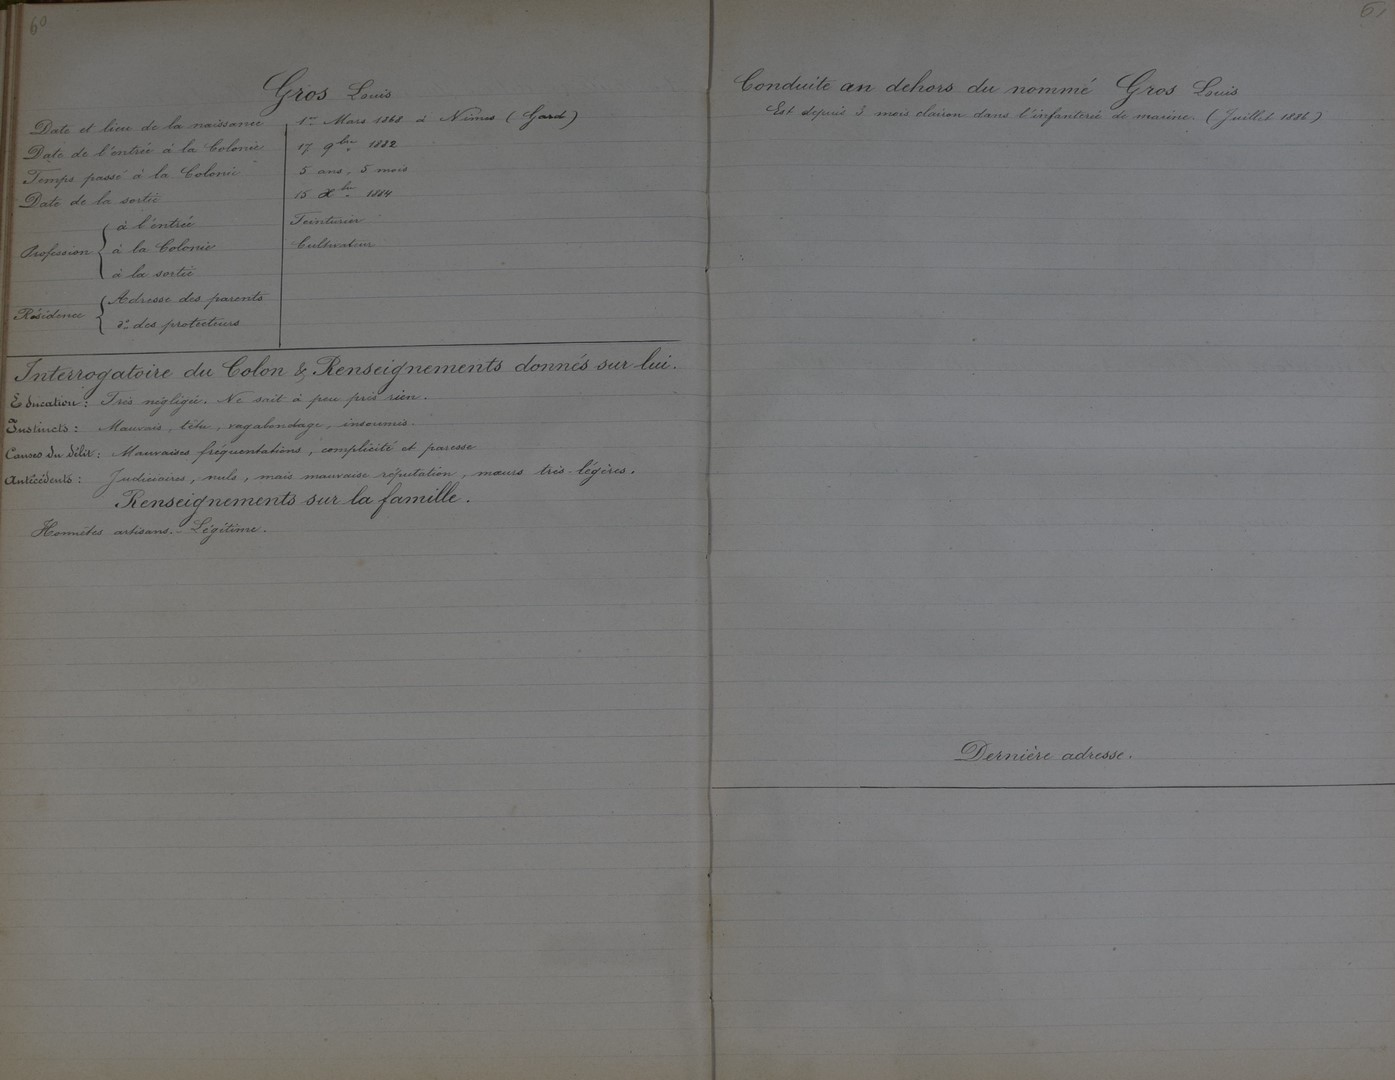 60
Gros Louis
Date et lieu de la naissance 1er Mars 1868 à Nimes (Gard)
Date de l'entrée à la Colonie 17 9bre 1882
Temps passé à la Colonie 5 ans, 5 mois
Date de la sortie 15 Xbre 1884
Profession à l'entrée Teinturier
à la Colonie Cultivateur
à la sortie
Résidence Adresse des parents
do des protecteurs
Interrogatoire du Colon & Renseignements donnés sur lui.
Education : Très négligée. Ne sait à peu près rien.
Instincts : Mauvais, têtu, vagabondage, insoumis.
Causes du délit : Mauvaises fréquentations, complicité et paresse
Antécédents : Judiciaires, nuls, mais mauvaise réputation, mœurs très-légères.
Renseignements sur la famille.
Honnêtes artisans. - Légitime.
61
Conduite au dehors du nommé Gros Louis
Est depuis 3 mois clairon dans l'infanterie de marine. (Juillet 1886)
Dernière adresse.